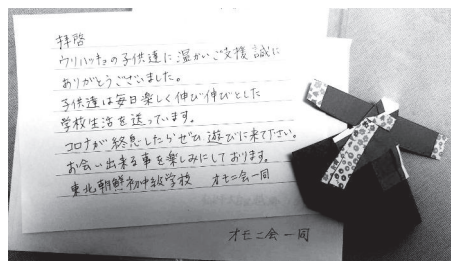 拝啓
ウリハッキョの子供達に温かいご支援誠に
ありがとうございました。
子供達は毎日楽しく伸び伸びとした
学校生活を送っています。
コロナが終息したらぜひ遊びに来て下さい。
お会い出来る事を楽しみにしております。
東北朝鮮初中級学校 オモニ会一同
オモニ会一同